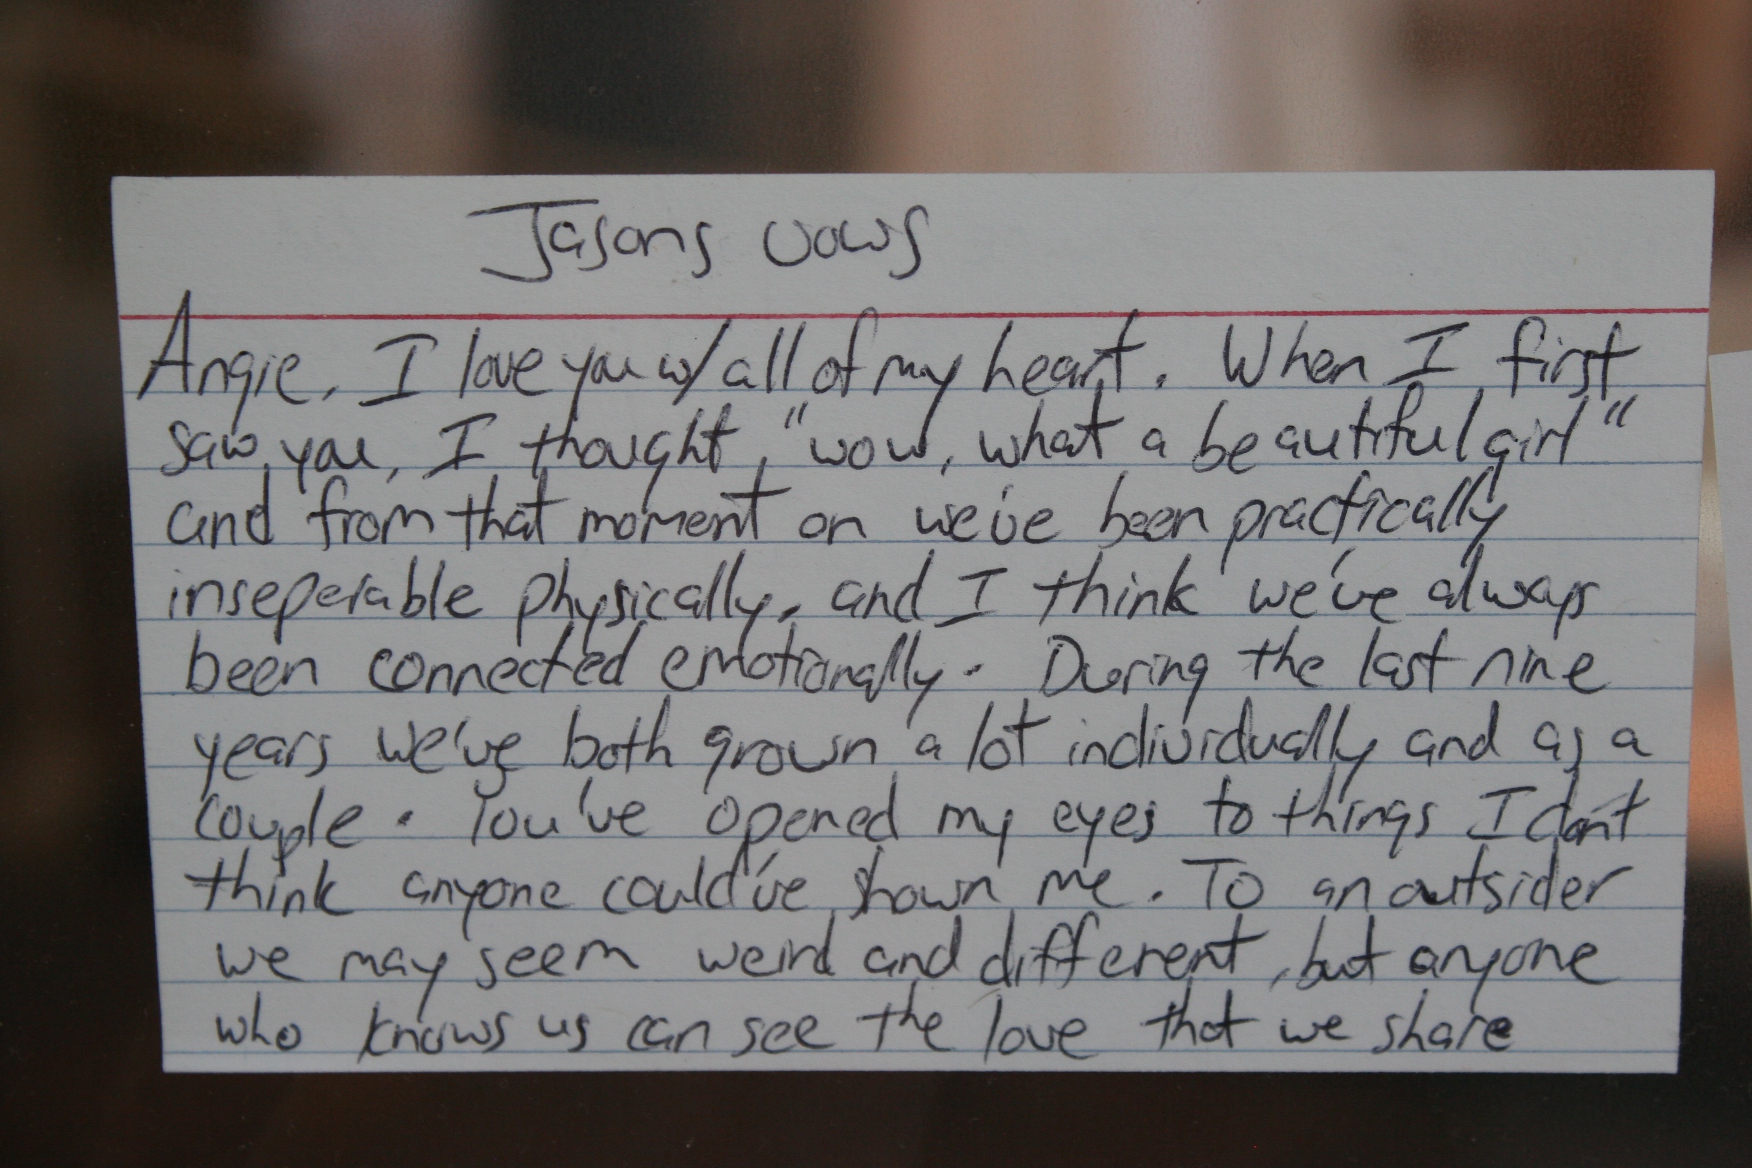 Jasons vows
Angie, I love you w/ all of my heart. When I first
saw you, I thought, "wow, what a beautiful girl"
and from that moment on we've been practically
inseperable physically, and I think we've always
been connected emotionally. During the last nine
years we've both grown a lot individually and as a
couple. You've opened my eyes to things I don't
think anyone could've shown me. To an outsider
we may seem weird and different, but anyone
who knows us can see the love that we share